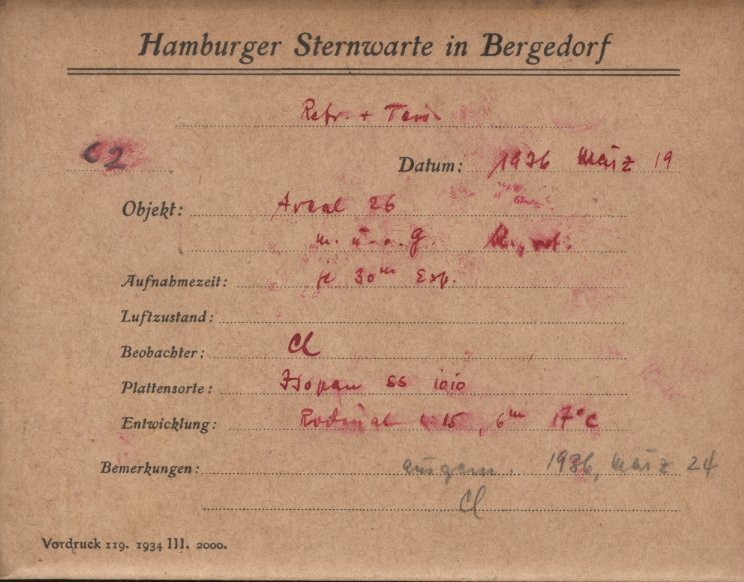 Hamburger Sternwarte in Bergedorf
Refr. + Tess.
C2 Datum: 1936 März 19
Objekt: Areal 26
m. u. o. G.
Aufnahmezeit: je 30m Exp.
Luftzustand:
Beobachter: Cl
Plattensorte: Isopan SS 1010
Entwicklung: Rodinal 1:15, 6m 17°C
Bemerkungen: ausgem. 1936, März 24
Cl
Vordruck 119. 1934 III. 2000.